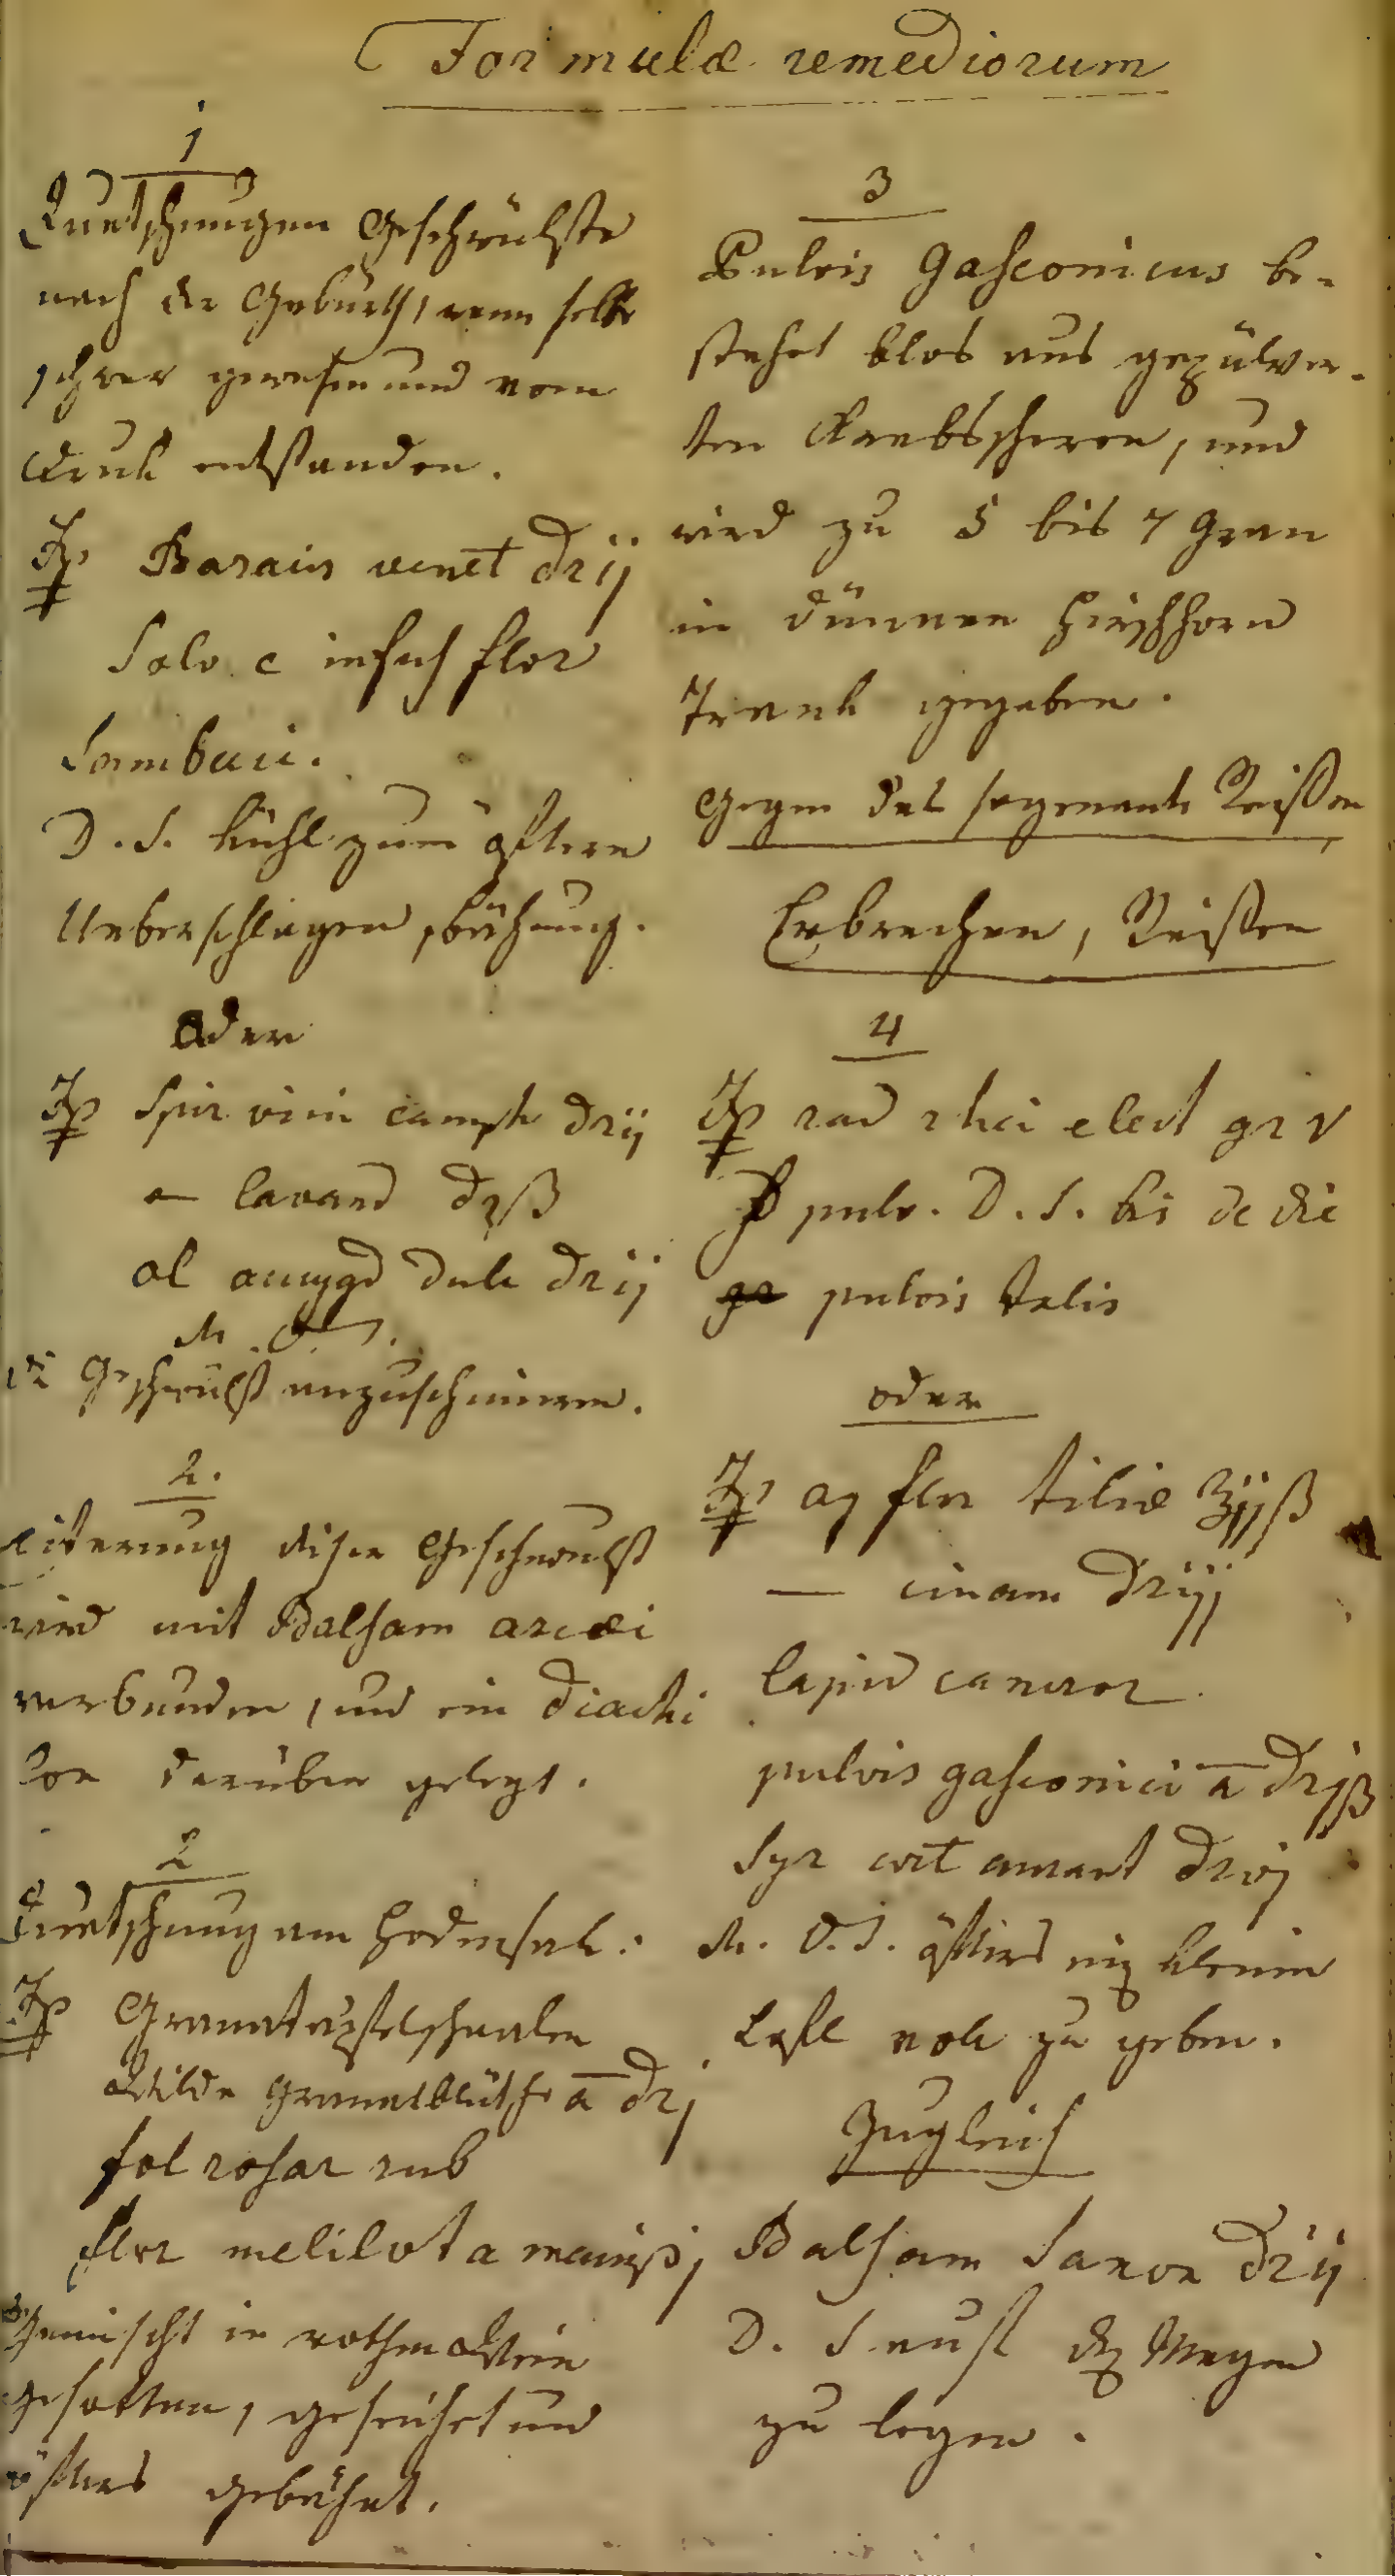 Formulæ remediorum
1
Quetschungen Geschwülste
nach der Geburth, wenn selbe
schwer gewesen und vom
Druk entstanden.
Rp Boracis venet dr ij
Solv c infus flor
Sambuci.
D. S. kühl zum öftern
Ueberschlagen, bähung.
Oder
Rp Spir vini camph dr ij
— lavand dr ß
ol amygd dulc dr ij
M. D. S.
die Geschwulst anzuschmieren.
2.
Eiterung diser Geschwulst
wird mit Balsam arcæi
verbunden, und ein diachi
lon darüber gelegt.
2
Quetschung am Hodensak.
Rp Granatapfelschaalen
Wilde Granatblüthe a dr j
fol rosar rub
flor melilot a man ß j
Gemischt in rothen Wein
gesotten, geseihet und
öfters gebähet.
3
Pulvis Gasconicus be-
stehet blos aus gepülver-
ten Krebsscheren, und
wird zu 5 bis 7 Gran
in dünnen Hirschhorn
Trank gegeben.
Gegen das sogenante Reissen
Erbrechen, Reissen
4
Rp rad rhei elect gr v
pulv. D. S. bis de die
pulvis talis
oder
Rp aq flor tiliæ ℥ijß
— cinam dr iij
lapid cancror
pulvis gasconici a dr jß
Syr cort aurant dr vj
M. D. S. öfters ein kleinen
Löfl voll zu geben.
Zugleich
Balsam Saxon dr ij
D. S. auf den Magen
zu legen.